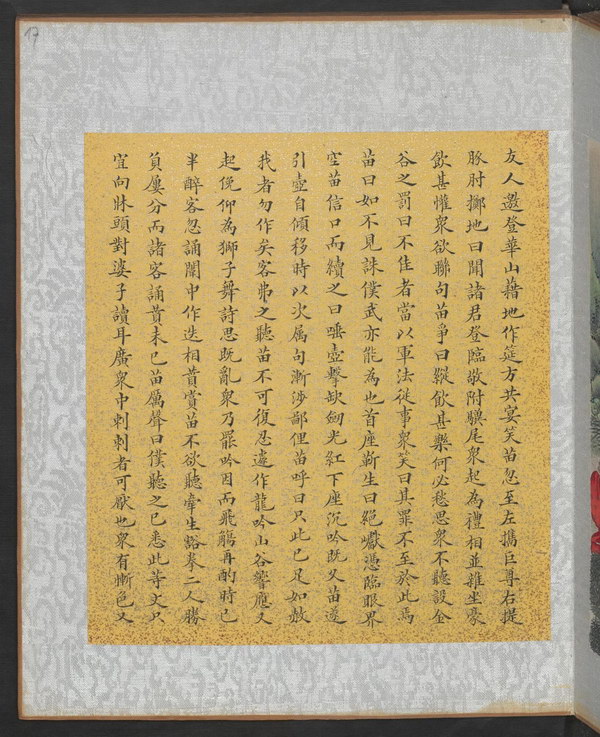 17
友人邀登華山藉地作筵方共宴笑苗忽至左攜巨尊右提
豚肘擲地曰聞諸君登臨敬附驥尾衆起為禮相並雜坐豪
飲甚懽衆欲聯句苗爭曰縱飲甚樂何必愁思衆不聽設金
谷之罰曰不佳者當以軍法從事衆笑曰其罪不至於此焉
苗曰如不見誅僕武亦能為也首座靳生曰絕巘憑臨眼界
空苗信口而續之曰唾壺擊缺劒光紅下座沉吟既久苗遂
引壺自傾移時以次属句漸涉鄙俚苗呼曰只此已足如赦
我者勿作矣客弗之聽苗不可復忍遽作龍吟山谷響應又
起俛仰為獅子舞詩思既亂衆乃罷吟因而飛觴再酌時已
半醉客忽誦闈中作迭相賛賞苗不欲聽牽生豁拳二人勝
負屢分而諸客誦賛未已苗厲聲曰僕聽之已悉此等文只
宜向牀頭對婆子讀耳廣衆中刺刺者可厭也衆有慚色又